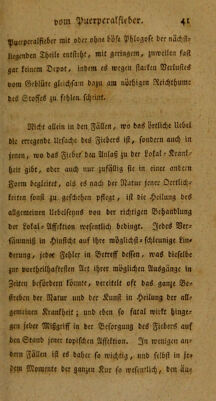 vom Puerperalfieber. 41
Puerperalfieber mit oder ohne böse Phlogose der nächst-
liegenden Theile entsteht, mit geringem, zuweilen fast
gar keinem Depot, indem es wegen starken Verlustes
vom Geblüte gleichsam dazu am nöthigen Reichthume
des Stoffes zu fehlen scheint.
Nicht allein in den Fällen, wo das örtliche Uebel
die erregende Ursache des Fiebers ist, sondern auch in
jenen, wo das Fieber den Anlaß zu der Lokal-Krank-
heit gibt, oder auch nur zufällig sie in einer andern
Form begleitet, als es nach der Natur jener Oertlich-
keiten sonst zu geschehen pflegt, ist die Heilung des
allgemeinen Uebelseyns von der richtigen Behandlung
der Lokal-Affektion wesentlich bedingt. Jedes Ver-
säumniß in Hinsicht auf ihre möglichst schleunige Lin-
derung, jeder Fehler in Betreff dessen, was dieselbe
zur vortheilhaftesten Art ihrer möglichen Ausgänge in
Zeiten befördern könnte, vereitelt oft das ganze Be-
streben der Natur und der Kunst in Heilung der all-
gemeinen Krankheit; und eben so fatal wirkt hinge-
gen jeder Mißgriff in der Besorgung des Fiebers auf
den Stand jener topischen Affektion. In wenigen an-
dern Fällen ist es daher so wichtig, und selbst in je-
dem Momente der ganzen Kur so wesentlich, den